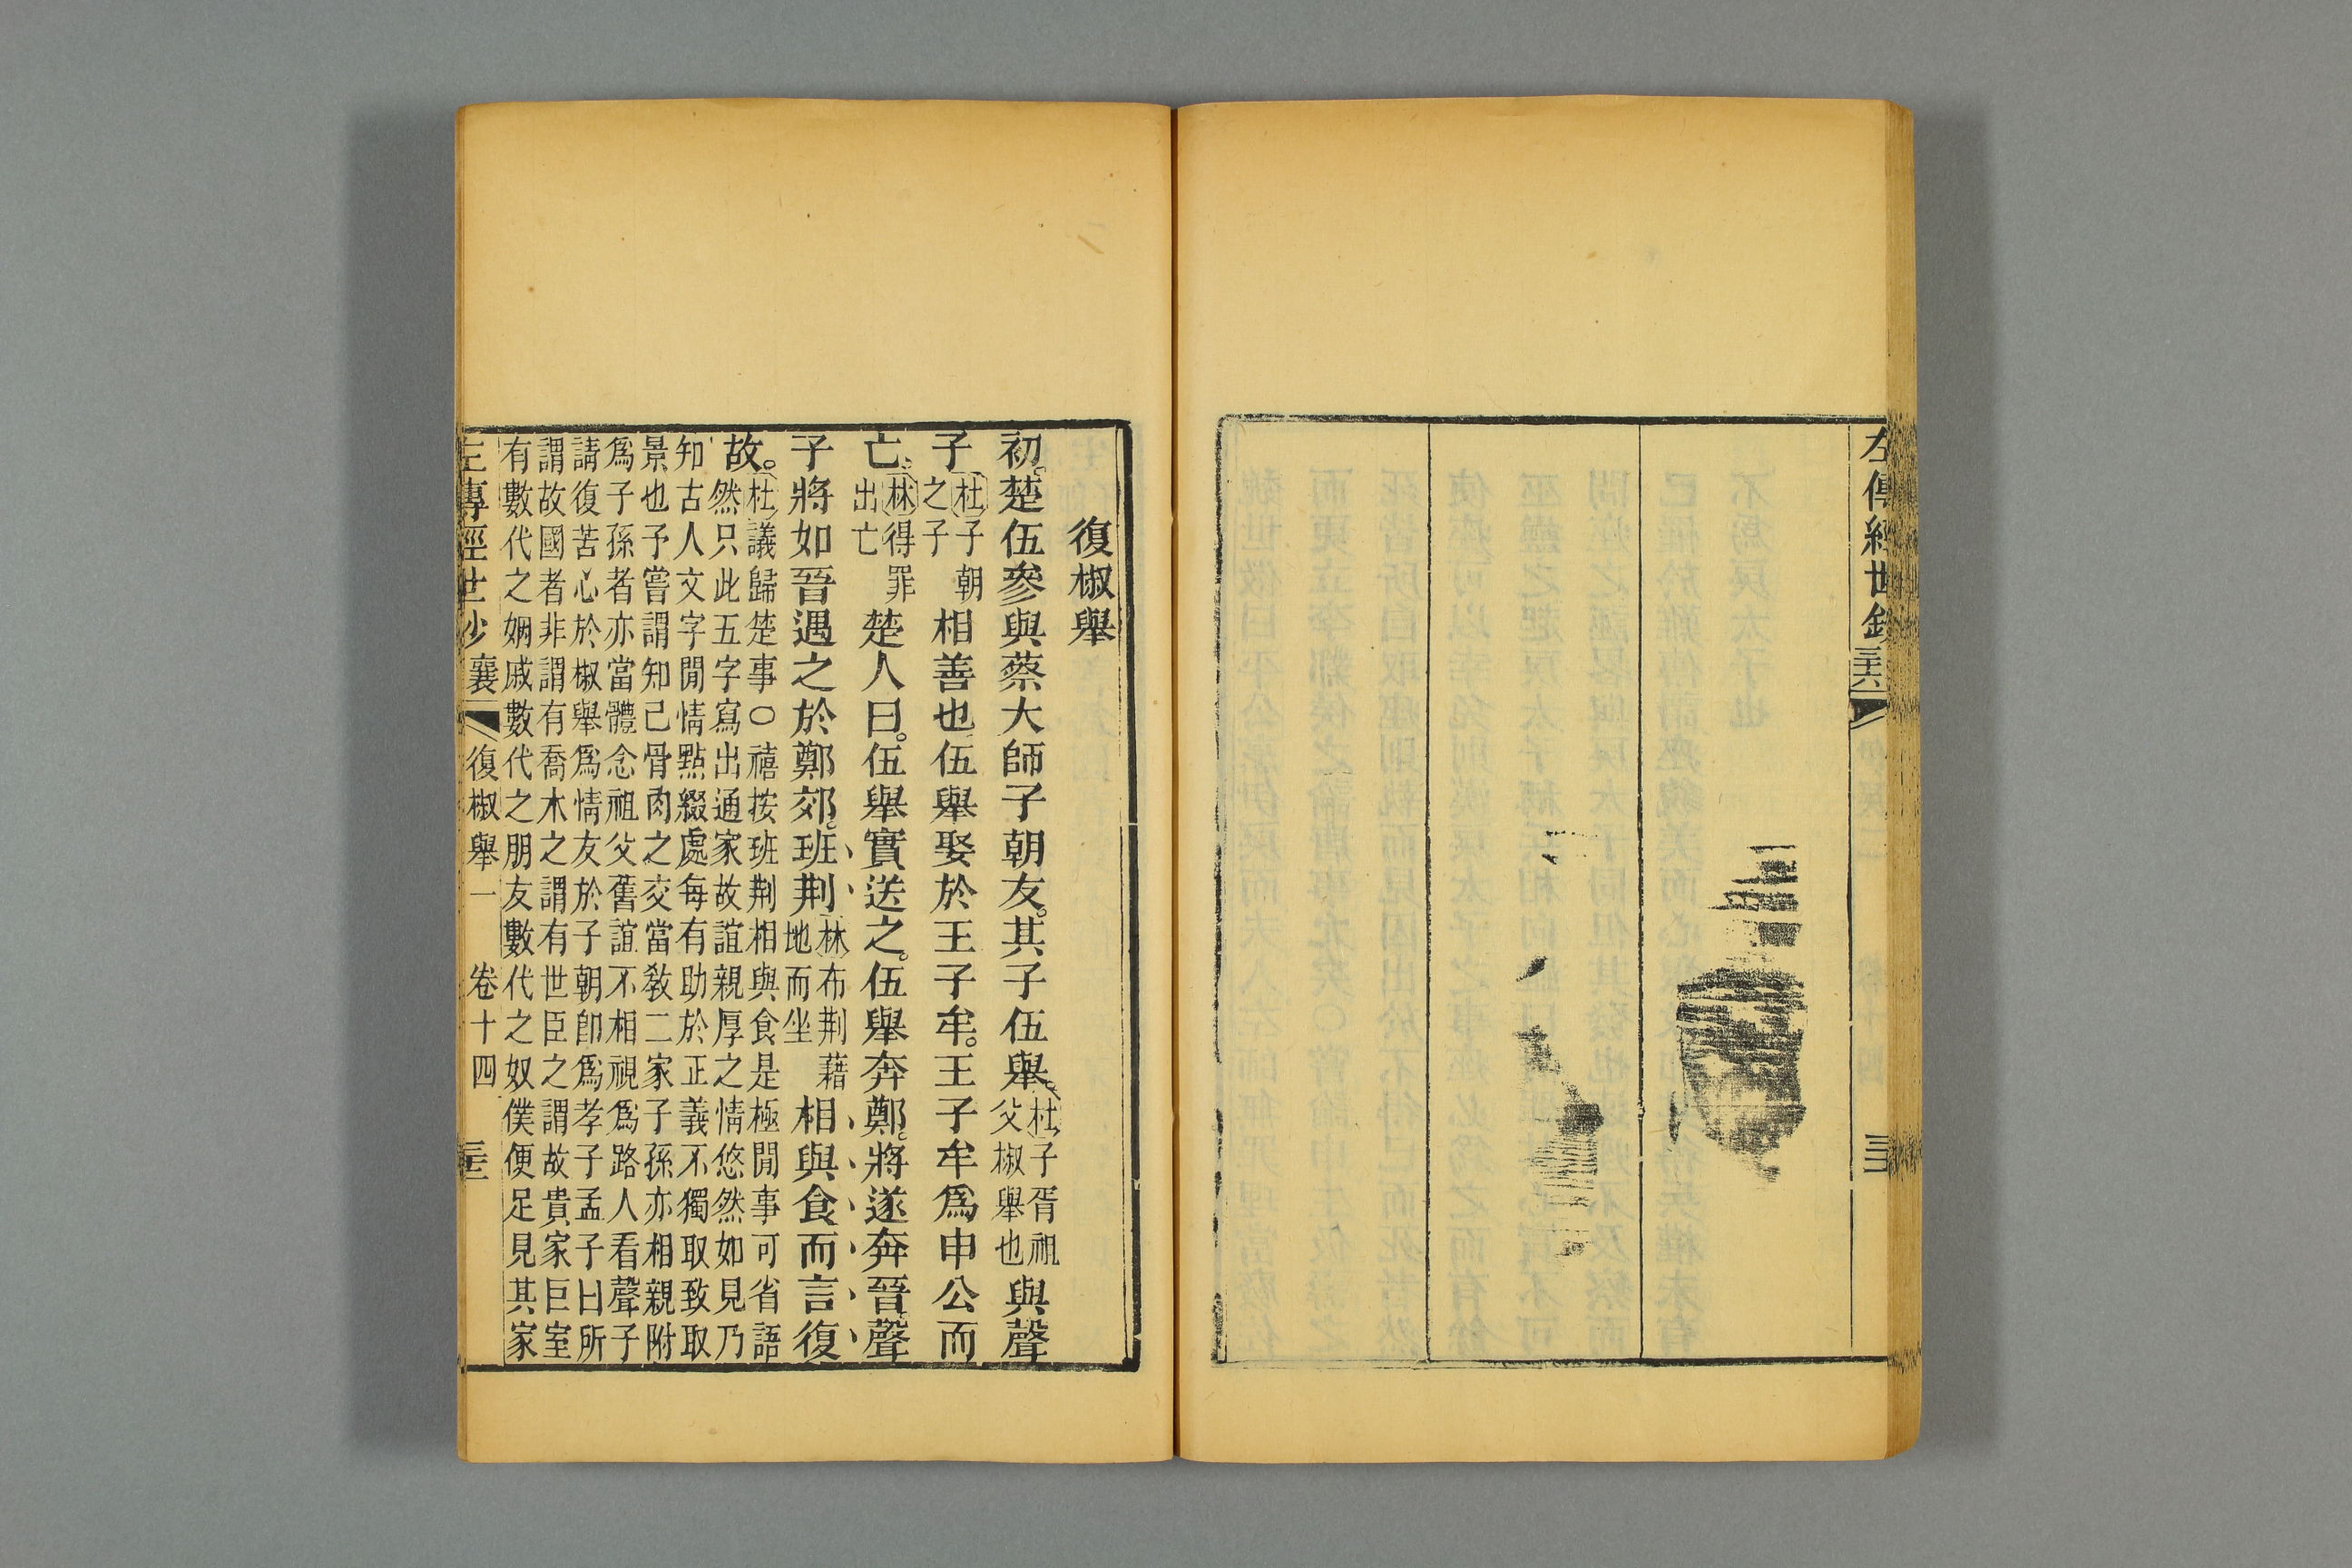 左傳經世鈔
復椒舉
初。楚伍參與蔡大師子朝友。其子伍舉。杜子胥祖父椒舉也與聲
子杜子朝之子相善也伍舉娶於王子牟。王子牟爲申公而
亡。林得罪出亡楚人曰。伍舉實送之。伍舉奔鄭。將遂奔晉。聲
子將如晉遇之於鄭郊。班荆林布荆藉地而坐相與食而言復
故。杜議歸楚事〇禧按班荆相與食是極閒事可省語
然只此五字寫出通家故誼親厚之情悠然如見乃
知古人文字閒情點綴處每有助於正義不獨取致取
景也予嘗謂知己骨肉之交當敎二家子孫亦相親附
爲子孫者亦當體念祖父舊誼不相視爲路人看聲子
請復苦心於椒舉爲情友於子朝卽爲孝子孟子曰所
謂故國者非謂有喬木之謂有世臣之謂故貴家巨室
有數代之婣戚數代之朋友數代之奴僕便足見其家
左傳經世鈔 襄 復椒舉一 卷十四